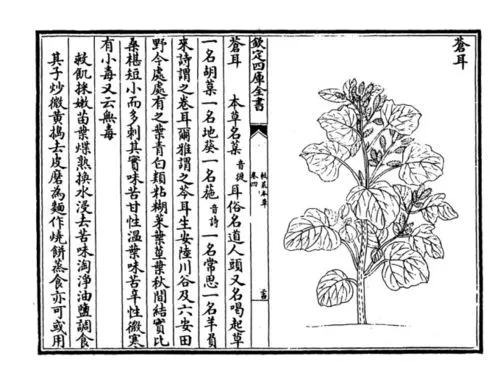 蒼耳
欽定四庫全書
卷四
蒼耳 本草名葈音徙耳俗名道人頭又名喝起草
一名胡葈一名地葵一名葹音詩一名常思一名羊負
來詩謂之卷耳爾雅謂之苓耳生安陸川谷及六安田
野今處處有之葉青白類粘糊菜葉莖葉秋間結實比
桑椹短小而多刺其實味苦甘性溫葉味苦辛性微寒
有小毒又云無毒
救飢採嫩苗葉煠熟換水浸去苦味淘淨油鹽調食
其子炒微黃搗去皮磨為麵作燒餅蒸食亦可或用